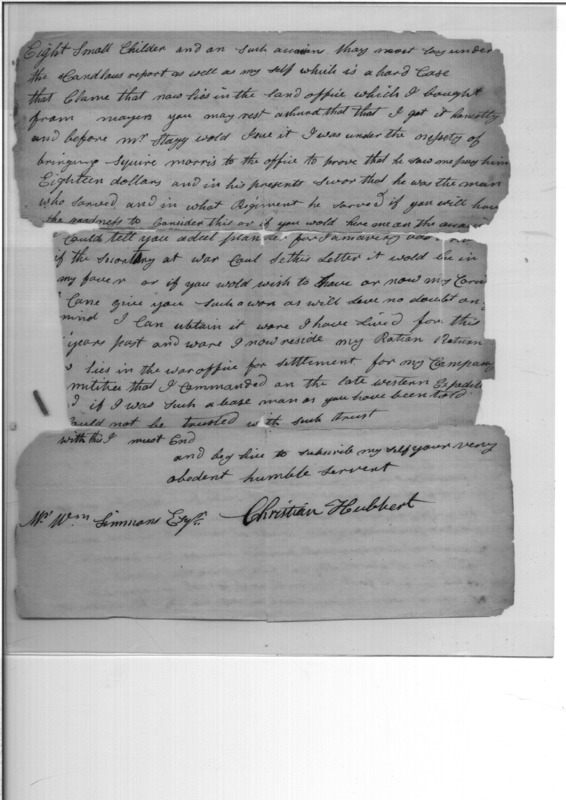 Eight Small Childer and on such accoions they most lay under
the Scandlous report as well as my self which is a hard Case
that Clame that now lies in the land office which I bought
from mayers you may rest ashured that that I got it honestly
and before mr Stagg wold Isue it I was under the nesety of
bringing Squire morris to the office to prove that he saw me pay him
Eighteen dollars and in his presents Swor that he was the man
who sarved and in what Regiment he sarved if you will have
the goodness to Consider this or if you wold here me on the
I Could tell you
if the Secretary at war Caul Sethis Letter it wold be in
my faver or if you wold wish to have or now my
I Cane give you such a won as will leve no doubt on
mind I Can obtain it ware I have Lived for this
years past and ware I now reside my Ration Return
lies in the war office for settlement for my Company
militia that I Commanded on the late western
if I was such a base man as you have been told
Could not be trusted with such trust
with this I must End
and beg live to subscribe my self your very
obedent humble servent
Mr. Wm Simmons Esqr. Christian Hubbert